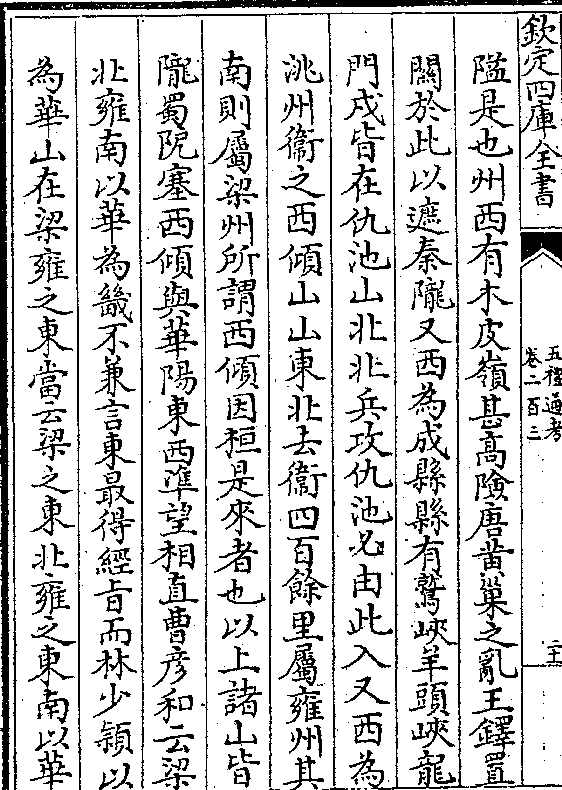 欽定四庫全書
五禮通考
卷二百三
二十
隘是也州西有木皮嶺甚髙險唐黄巢之亂王鐸置
關於此以遮秦隴又西為成縣縣有鷲峽羊頭峽龍
門戍皆在仇池山北北兵攻仇池必由此入又西為
洮州衞之西傾山山東北去衞四百餘里屬雍州其
南則屬梁州所謂西傾因桓是來者也以上諸山皆
隴蜀阨塞西傾與華陽東西準望相直曹彦和云梁
北雍南以華為畿不兼言東最得經旨而林少頴以
為華山在梁雍之東當云梁之東北雍之東南以華